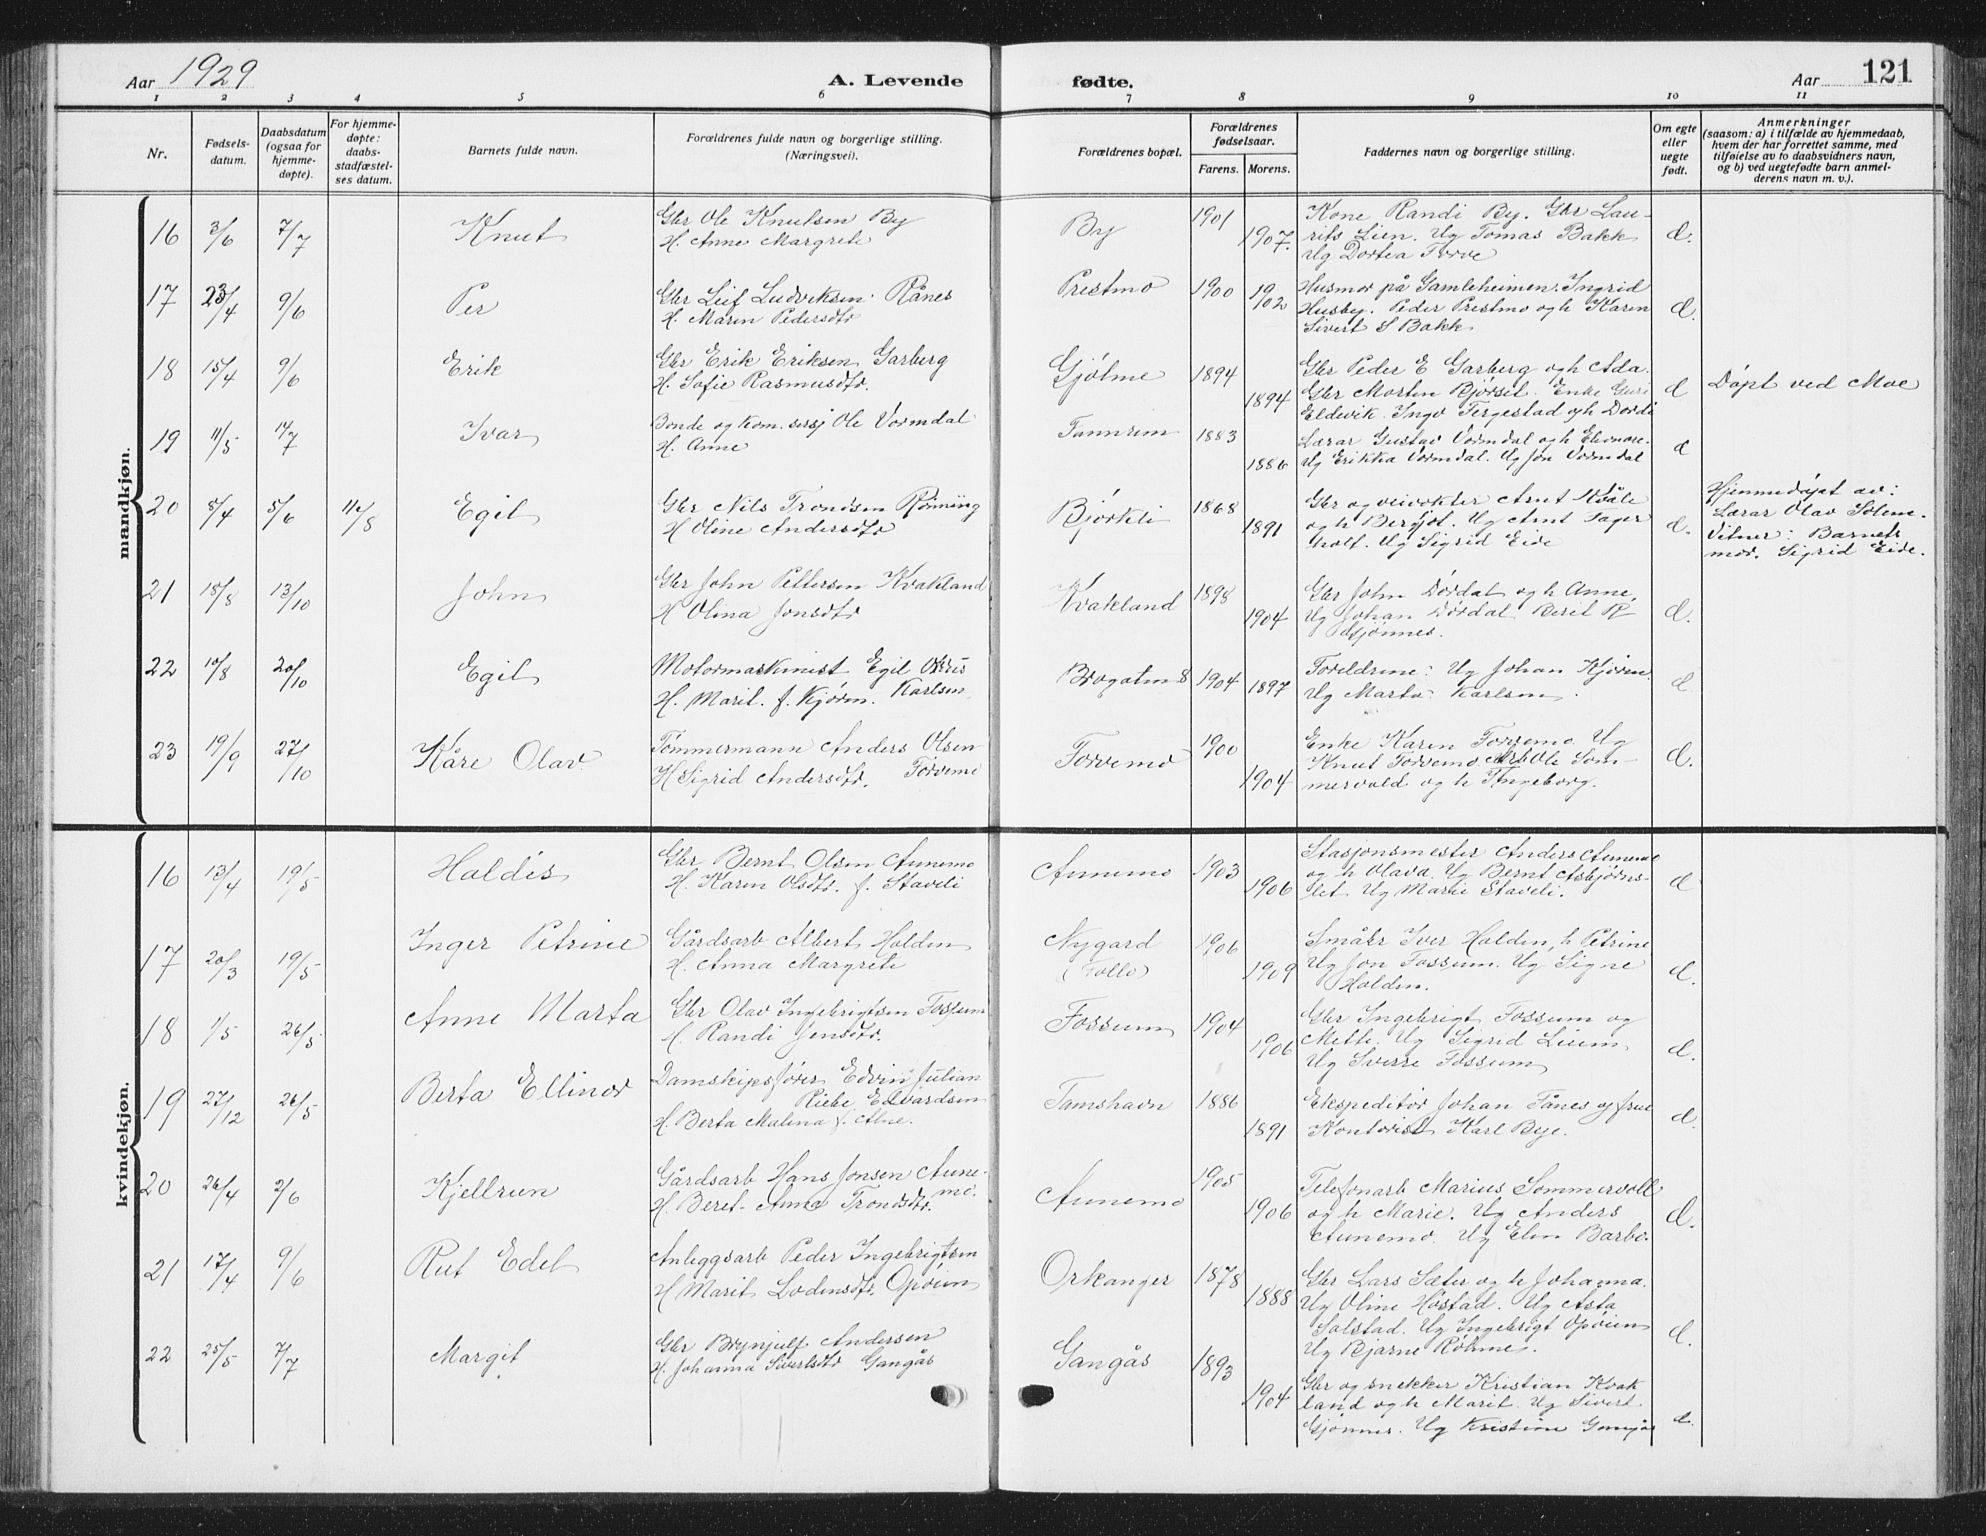 Aar 1929
A. Levende
fødte.
Aar 121
1 2 3 4 5 6 7 8 9 10 11
Nr.
Fødsels-
datum.
Daabsdatum
(ogsaa for
hjemme-
døpte).
For hjemme-
døpte:
daabs-
stadfæstel-
ses datum.
Barnets fulde navn.
Forældrenes fulde navn og borgerlige stilling.
(Næringsvei).
Forældrenes bopæl.
Forældrenes
fødselsaar.
Farens. Morens.
Faddernes navn og borgerlige stilling.
Om egte
eller
uegte
født.
Anmerkninger
(saasom: a) i tilfælde av hjemmedaab,
hvem der har forrettet samme, med
tilføielse av to daabsvidners navn,
og b) ved uegtefødte barn anmel-
derens navn m. v.).
mandkjøn.
16 3/6 7/7 Knut
Gbr Ole Knutsen By
H. Anne Margrete
By 1901 1907.
Kone Randi By. Gbr Lau-
rits Lien. Ug Tomas Bakk
Ug Dortea Forve
e.
17 23/4 9/6 Per
Gbr Leif Ludviksen Rånes
H. Marin Pedersdtr
Prestmo 1900 1902
Husmor på Gamleheimen Ingrid
Husby. Peder Prestmo og h Karen
Sivert S Bakk
e.
18 15/4 9/6 Erik
Gbr Erik Eriksen Garberg
H. Sofie Rasmusdtr.
Gjølme 1894 1894
Gbr Peder E Garberg og h Ada.
Gbr Morten Bjørset. Enke Guri
Eldevik. Ingv Fergestad og h Dordi
e
Døpt ved Moe
19 11/5 14/7 Ivar
Bonde og kom. Ole Vormdal
H. Anne
Fannrem 1883 1886
Lærar Gustav Vormdal og h Eleonore.
Ug Erikka Vormdal. Ug Jon Vormdal
e
20 8/4 5/6 11/8 Egil
Gbr Nils Trondsen Rønning
H Oline Andersdtr
Bjørkli 1868 1891
Gbr og veivokter Arnt Kvåle
og h Bergjot. Ug Arnt Fager
holt. Ug Sigrid Eide
e.
Hjemmedøpt av:
Lærar Olav Solem.
Vitner: Barnets
mor. Sigrid Eide.
21 18/8 13/10 John
Gbr John Pettersen Kvakland
H Olina Jonsdtr
Kvakland 1898 1904
Gbr John Dørdal og h Anne.
Ug Johan Dørdal Berit R
Gjønnes.
e.
22 10/8 20/10 Egil
Motormaskinist Egil
H. Marit. f. Kjøren. Karlsen
Brogatn 8 1904 1897
Foreldrene: Ug Johan Kjøren.
Ug Marta Karlsen.
e.
23 19/9 27/10 Kåre Olav
Tømmermann Anders Olsen
H Sigrid Andersdtr. Forvemo
Forvemo 1900 1904
Enke Karen Forvemo. Ug
Knut Forvemo Arb Ole Som-
mervold og h Ingeborg.
e.
kvindekjøn.
16 13/4 19/5 Haldis
Gbr Bernt Olsen Aunemo
H. Karen Olsdtr. f. Staveli
Aunemo 1903 1906
Stasjonsmester Anders Aunemo
og h Olava. Ug Bernt Asbjørns-
let Ug Marie Staveli.
e
17 20/3 19/5 Inger Petrine
Gårdsarb Albert Holden
H. Anna Margrete
Nygard
(Follo)
1906 1909
Småbr Iver Holden, h Petrine
Ug Jon Fossum. Ug Signe
Holden.
e.
18 1/5 26/5 Anne Marta
Gbr Olav Ingebrigtsen Fossum
H. Randi Jensdtr.
Fossum 1904 1906
Gbr Ingebrigt Fossum og
Mette. Ug Sigrid Lium
Ug Sverre Fossum
e.
19 27/12 26/5 Berta Ellinor
Damskipsfører Edvin Julian
Riebe Edvardsen
H. Berta Malena f. Alne.
Tamshavn 1886 1891
Ekspeditør Johan Tånes og frue
Kontorist Karl Bye.
e.
20 26/4 2/6 Kjellrun
Gårdsarb Hans Jonsen Aune-
mo.
H. Beret-Anna Trondsdtr.
Aunemo 1905 1906
Telefonarb Marius Sommervoll
og h Marie. Ug Anders
Aunemo. Ug Elen Barbo.
e.
21 17/4 9/6 Rut Edel
Anleggsarb Peder Ingebrigtsen
H Marit Lodensdtr. Opøien
Orkanger 1878 1888
Gbr Lars Sæter og h Johanna.
Ug Oline Høstad. Ug Asta
Solstad. Ug Ingebrigt Opøien
Ug Bjarne Røhme.
e.
22 25/5 7/7 Margit
Gbr Brynjulf Andersen
H. Johanna Sivertsdtr Gangås
Gangås 1893 1904
Gbr og snekker Kristian Kvak
land og h Marit. Ug Sivert
Gjønnes. Ug Kristine Gangås
e.